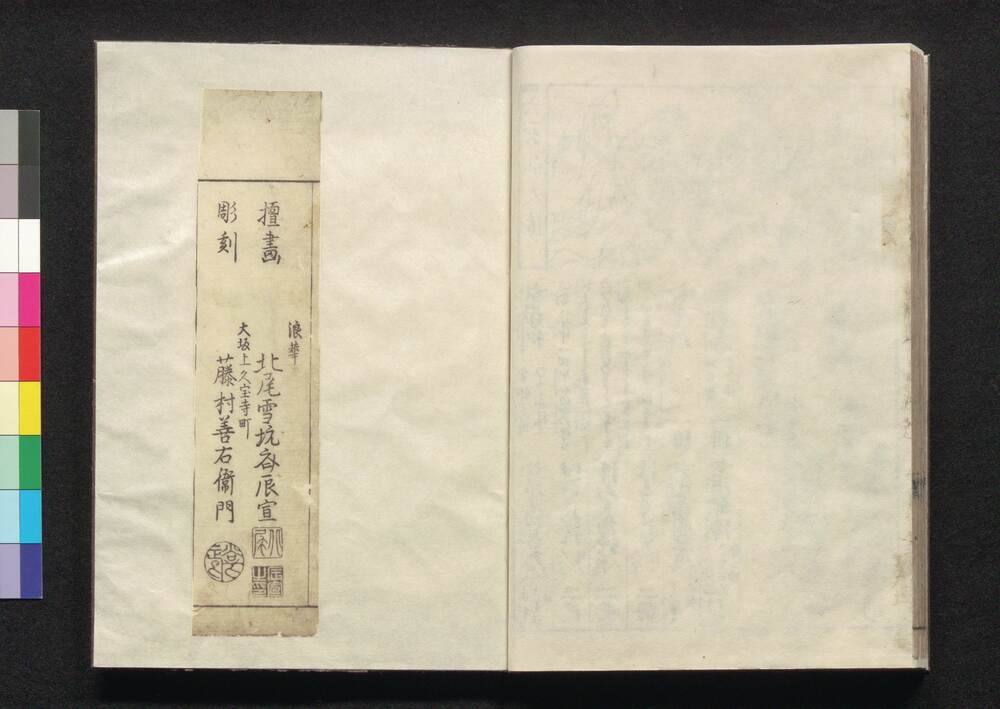 擅畫 浪華 北尾雪坑斎辰宣
彫刻 大坂上久宝寺町 藤村善右衞門